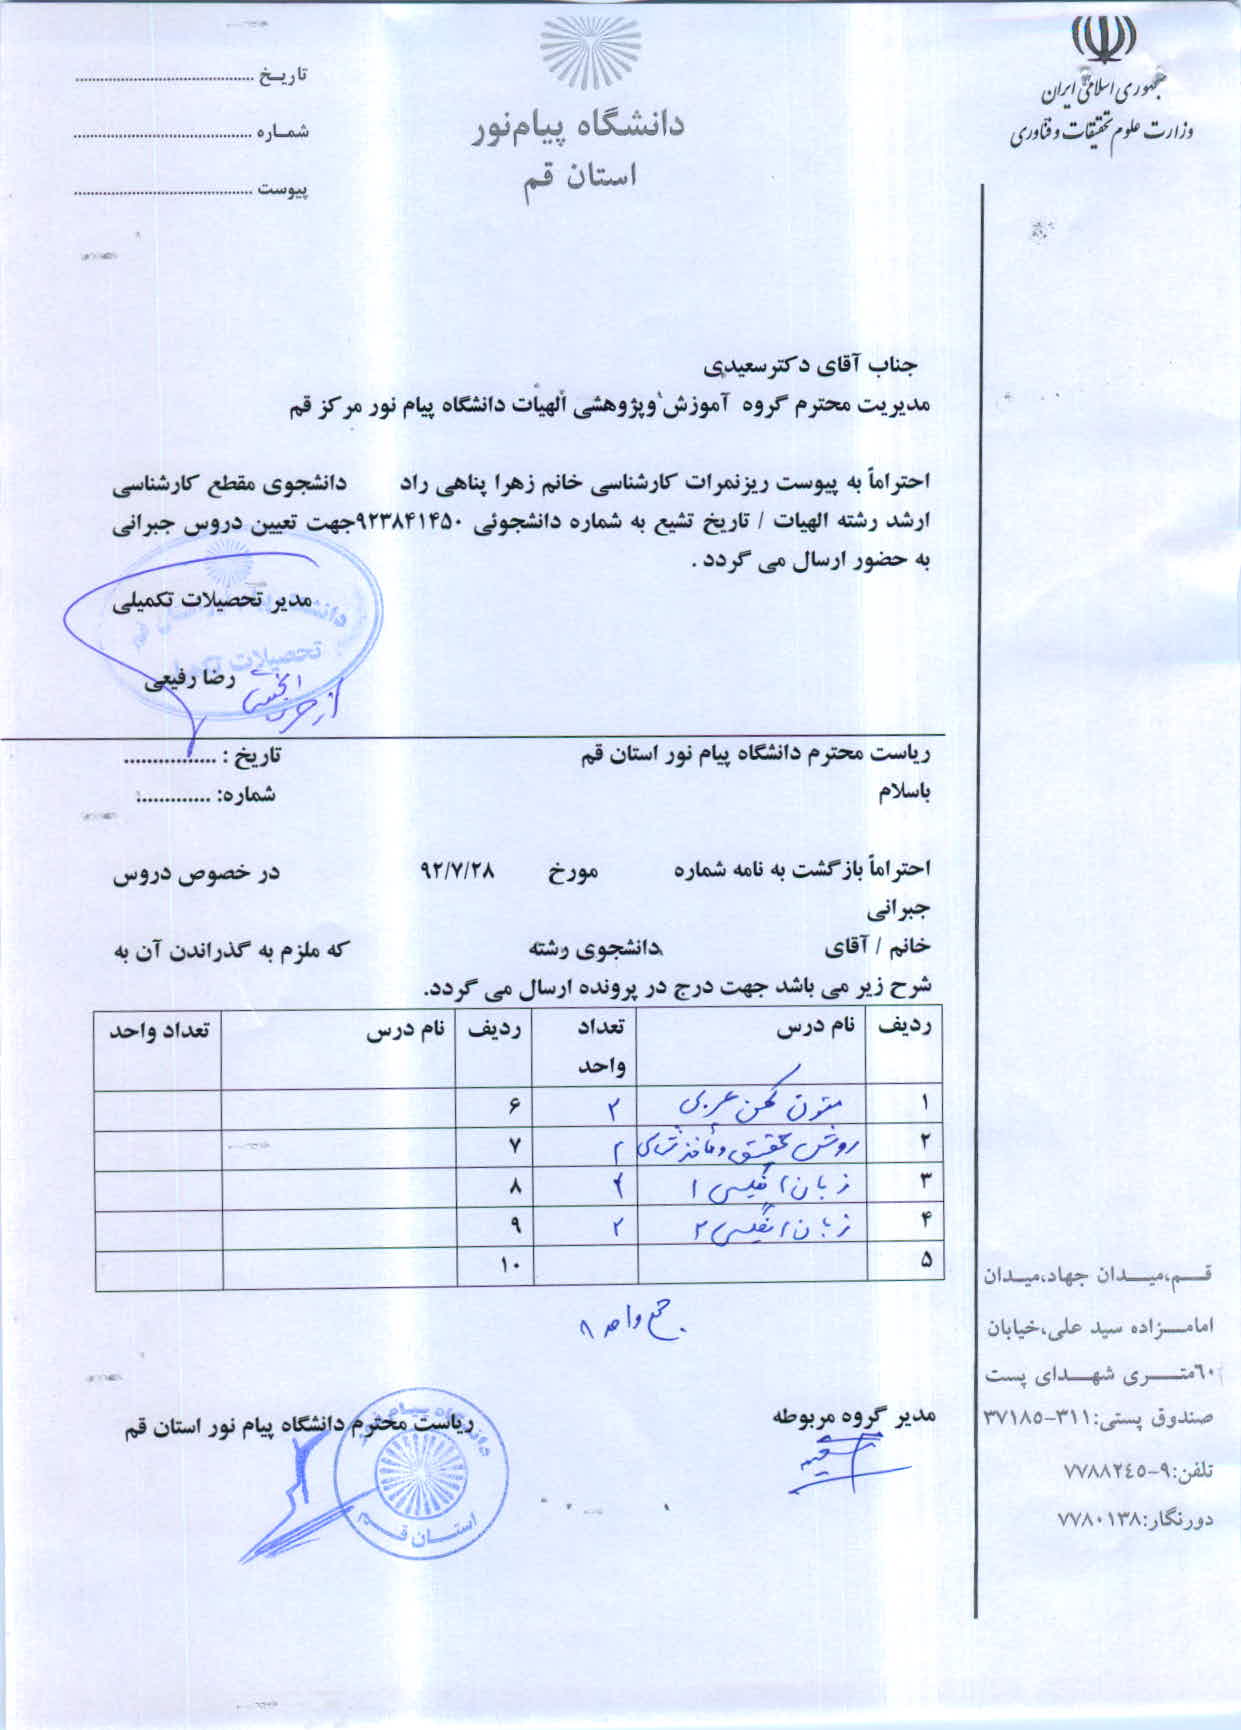 جمهوری اسلامی ایران
وزارت علوم تحقیقات و فناوری
دانشگاه پیام‌نور
استان قم
تاریخ ........................................
شماره ........................................
پیوست ........................................
جناب آقای دکترسعیدی
مدیریت محترم گروه آموزش وپژوهشی الهیات دانشگاه پیام نور مرکز قم
احتراماً به پیوست ریزنمرات کارشناسی خانم زهرا پناهی راد دانشجوی مقطع کارشناسی
ارشد رشته الهیات / تاریخ تشیع به شماره دانشجوئی ۹۲۳۸۴۱۴۵۰جهت تعیین دروس جبرانی
به حضور ارسال می گردد .
مدیر تحصیلات تکمیلی
رضا رفیعی
تحصیلات تکمیلی
ریاست محترم دانشگاه پیام نور استان قم
تاریخ : ................
باسلام
شماره: .............
احتراماً بازگشت به نامه شماره مورخ ۹۲/۷/۲۸ در خصوص دروس
جبرانی
خانم / آقای دانشجوی رشته که ملزم به گذراندن آن به
شرح زیر می باشد جهت درج در پرونده ارسال می گردد.
ردیف نام درس تعداد واحد ردیف نام درس تعداد واحد
۱ متون کهن عربی ۲ ۶
۲ روش تحقیق و مأخذشناسی ۲ ۷
۳ زبان انگلیسی ۱ ۲ ۸
۴ زبان انگلیسی ۲ ۲ ۹
۵ ۱۰
جمع واحد ۸
مدیر گروه مربوطه
ریاست محترم دانشگاه پیام نور استان قم
دانشگاه پیام نور
استان قم
قم،میدان جهاد،میدان
امامزاده سید علی،خیابان
۶۰متری شهدای پست
صندوق پستی:۳۱۱-۳۷۱۸۵
تلفن:۹-۷۷۸۸۲۴۵
دورنگار:۷۷۸۰۱۳۸